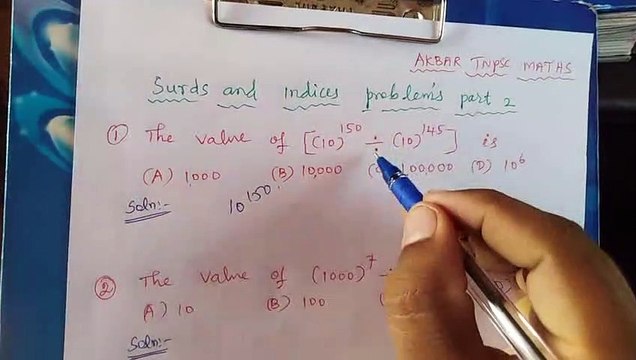 AKBAR TNPSC MATHS
Surds and indices problem's part 2
① The value of [(10)^150 ÷ (10)^145] is
(A) 1,000 (B) 10,000 1,00,000 (D) 10^6
Soln:- 10^150
② The value of (1000)^7
(A) 10 (B) 100
Soln:-